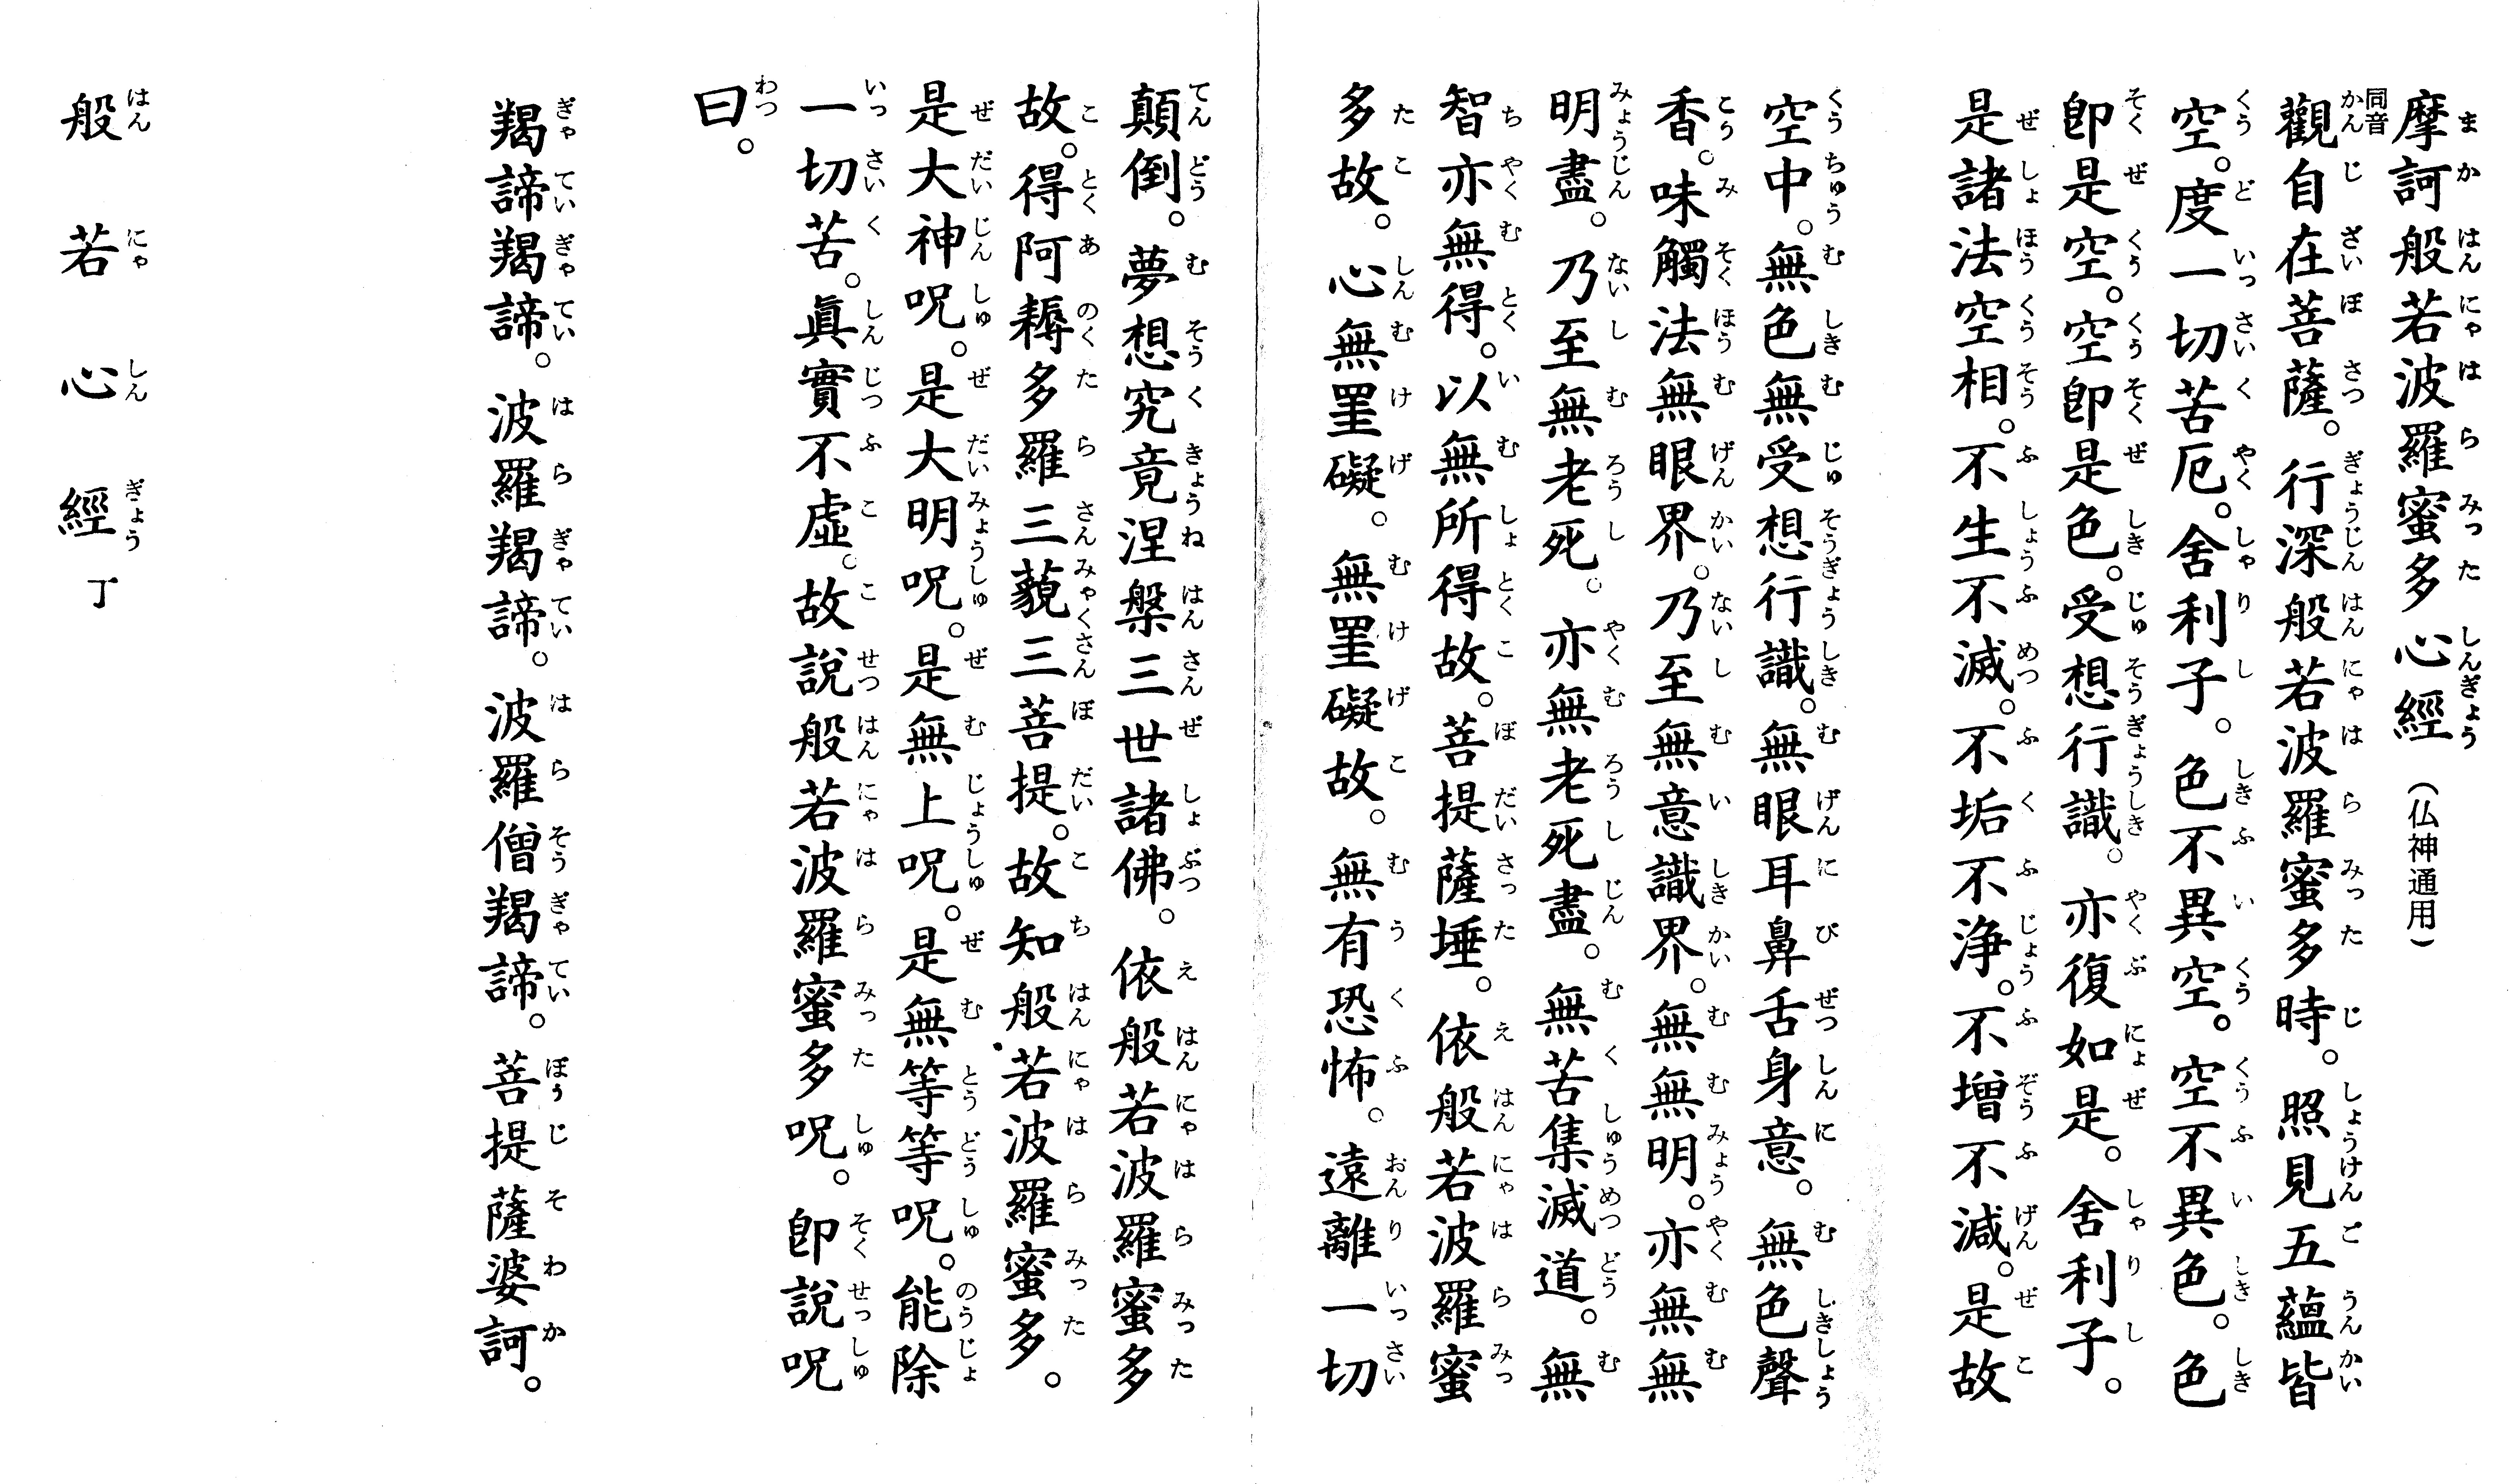 摩訶般若波羅蜜多心經（仏神通用）
同音
觀自在菩薩。行深般若波羅蜜多時。照見五蘊皆
空。度一切苦厄。舍利子。色不異空。空不異色。色
卽是空。空卽是色。受想行識。亦復如是。舍利子。
是諸法空相。不生不滅。不垢不浄。不増不減。是故
空中。無色無受想行識。無眼耳鼻舌身意。無色聲
香。味觸法無眼界。乃至無意識界。無無明。亦無無
明盡。乃至無老死。亦無老死盡。無苦集滅道。無
智亦無得。以無所得故。菩提薩埵。依般若波羅蜜
多故。心無罣礙。無罣礙故。無有恐怖。遠離一切
顛倒。夢想究竟涅槃三世諸佛。依般若波羅蜜多
故。得阿耨多羅三藐三菩提。故知般若波羅蜜多。
是大神呪。是大明呪。是無上呪。是無等等呪。能除
一切苦。眞實不虛。故說般若波羅蜜多呪。卽說呪
曰。
羯諦羯諦。波羅羯諦。波羅僧羯諦。菩提薩婆訶。
般若心經 丁